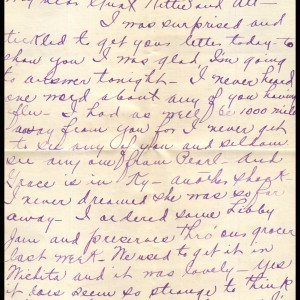 My dear Aunt Nettie and All -
I was surprised and
tickled to get your letter today - to
show you I was glad, I'm going
to answer tonight - I never heard
one word about any of you having
flu - I had as well be 1000 miles
away from you for I never get
to see any of you and seldom
see any one from Pearl - And
Grace is in Ky - another shock -
I never dreamed she was so far
away - I ordered some Libby
Jam and preserves thro' our grocer
last week - He used to get it in
Wichita and it was lovely - Yes
it does seem so strange to think